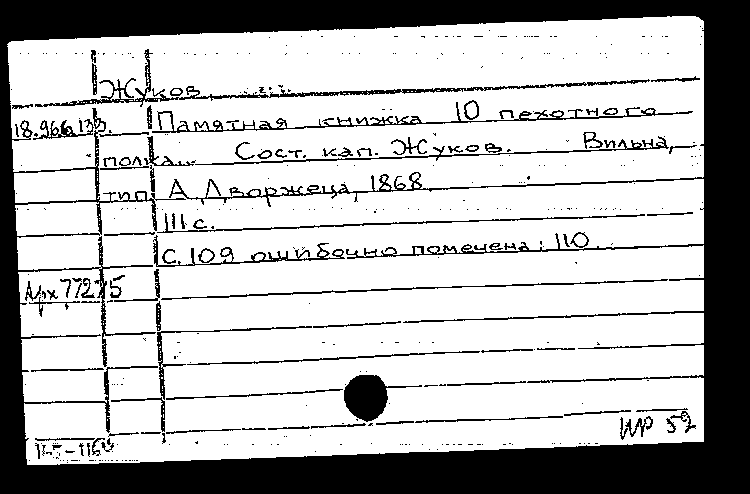 Жуков,
18.96.6.135. Памятная книжка 10 пехотного
полка... Сост. кап. Жуков. Вильна,
тип. А. Дворжеца, 1868.
111 с.
С. 109 ошибочно помечена: 110.
Арх 77275
ИР 52